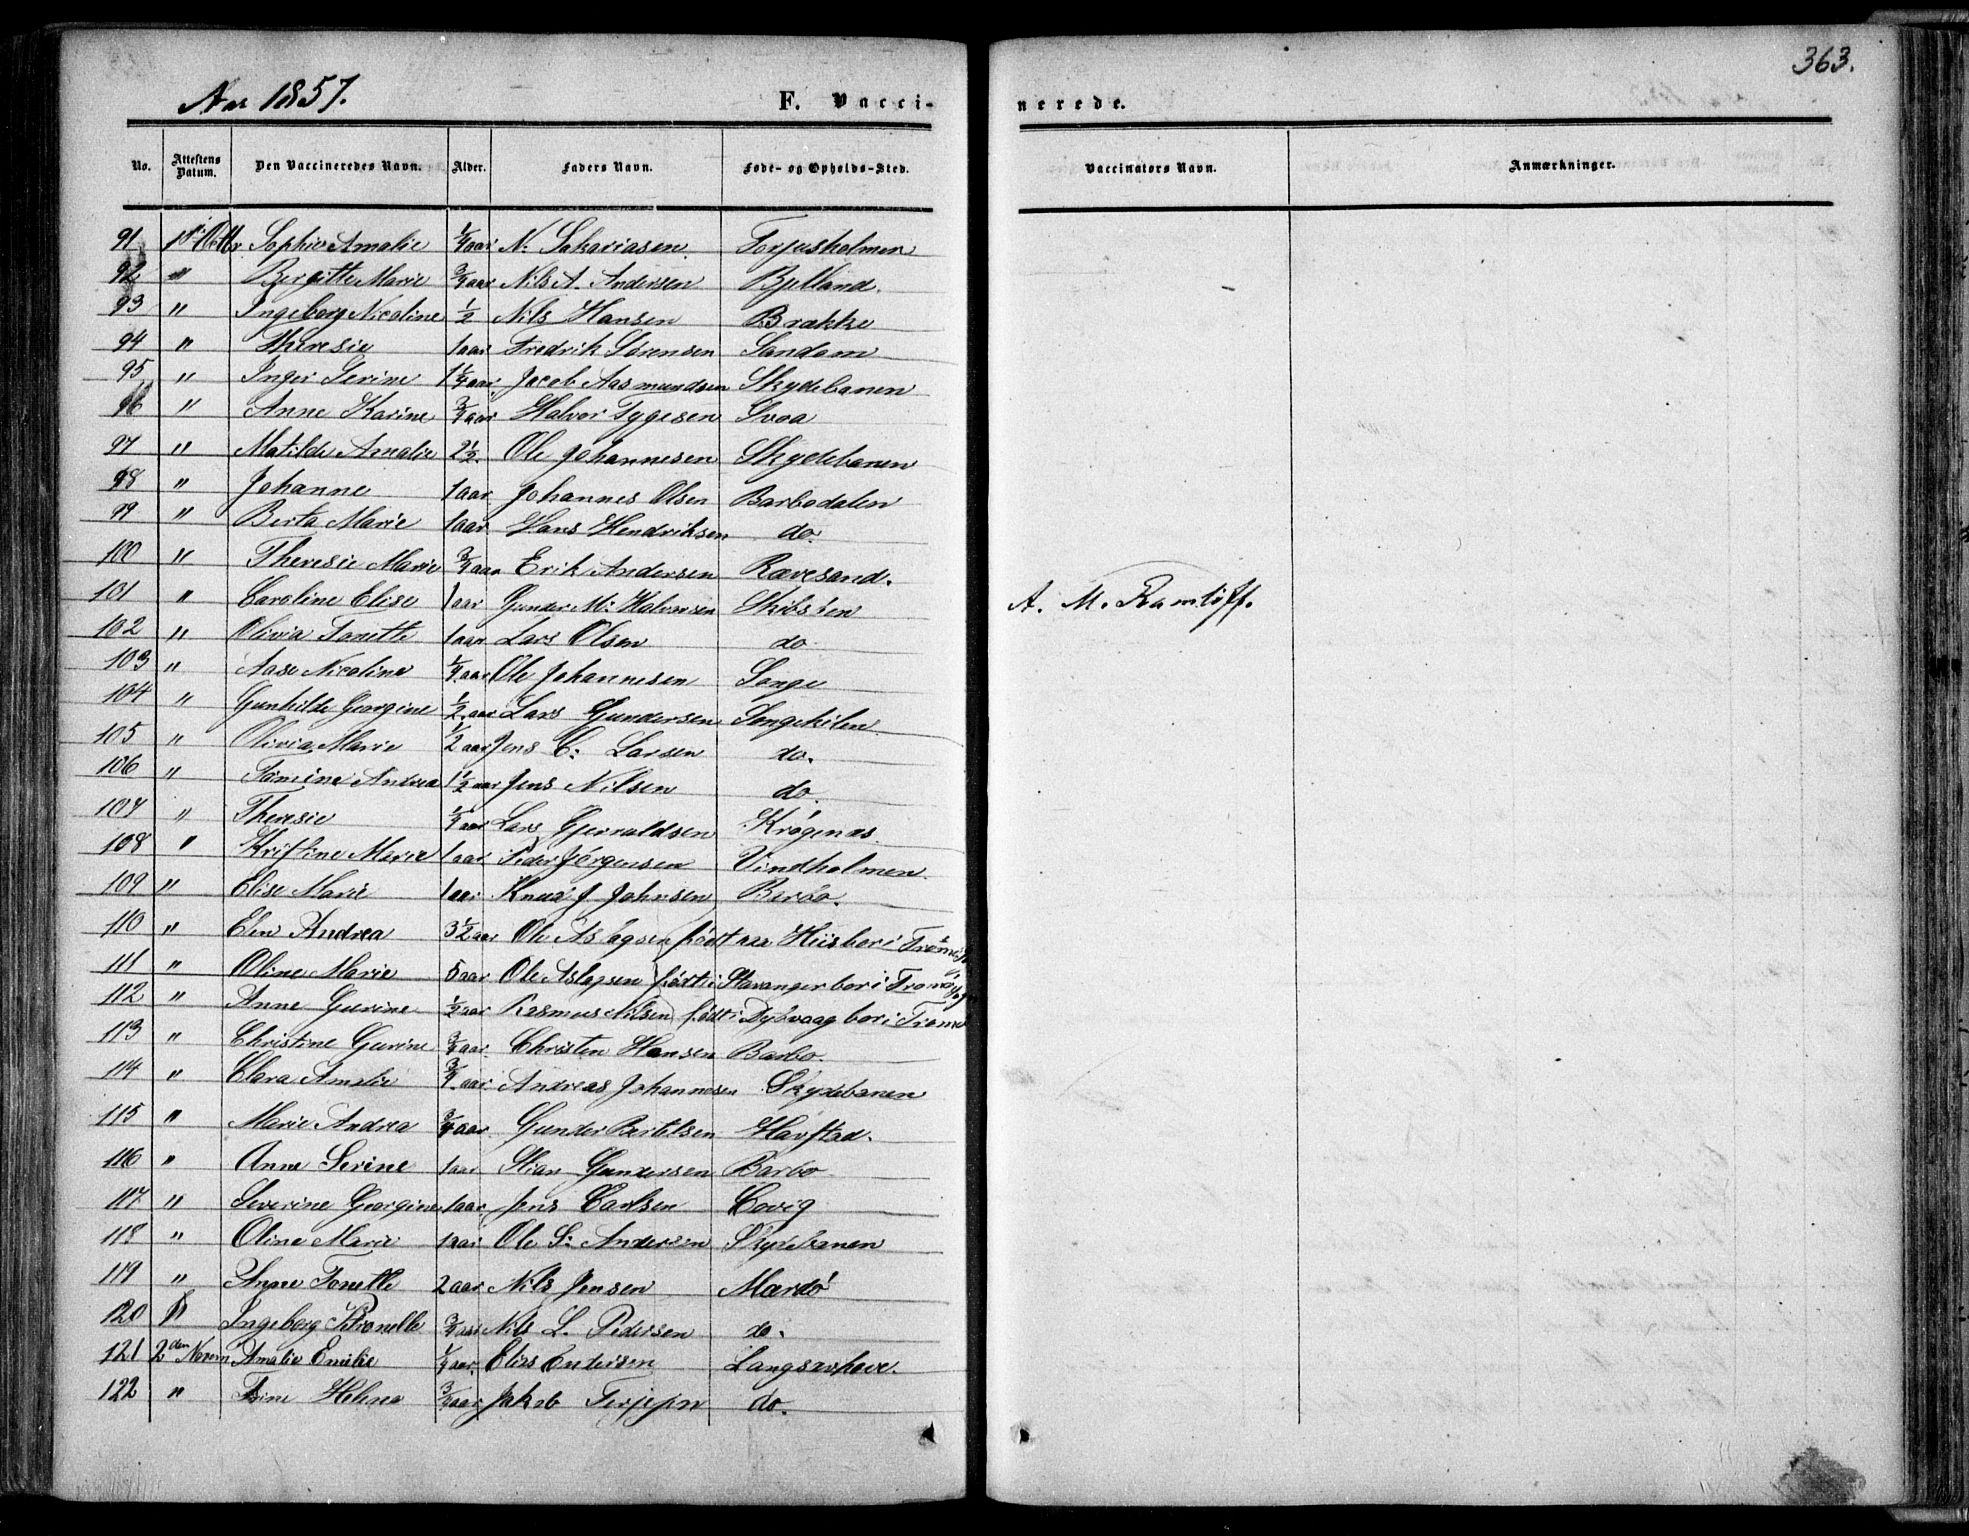 363.
Aar 1857.
F. Vacci-
nerede.
No. Attestens Datum. Den Vaccineredes Navn. Alder. Faders Navn. Føde- og Opholds-Sted. Vaccinators Navn. Anmærkninger.
91 1ste Octbr Sophie Amalie 1/4 aar N. Sakariasen. Torjusholmen
92 " Bergitte Marie 3/4 aar Nils A. Andersen Bjelland.
93 " Ingeborg Nicoline 1/2 Nils Hansen Brække
94 " Theresie 1 aar Fredrik Sørensen Sandum
95 " Inger Serine 1 1/4 aar Jacob Aasmundsen Skydebanen
96 " Anne Karine 3/4 aar Halvor Tygesen Svoa
97 " Matilde Amalie 2 1/2. Ole Johannesen Skydebanen
98 " Johanne 1 aar Johannes Olsen Barbodalen
99 " Berta Marie 1 aar Hans Hendriksen do.
100 " Theresie Marie 3/4 aar Erik Andersen Rævesand.
101 " Caroline Elise 1 aar Gunder M. Halvorsen Skibsten A. M. Ramløff.
102 " Olivia Tonette 1 aar Lars Olsen do
103 " Aase Nicoline 1/4 aar Ole Johannesen Songe
104 " Gunhilde Georgine 1/2 aar Lars Gundersen Songekilen
105 " Olivia Marie 1/2 aar Jens C: Larsen do.
106 " Tomine Andrea 1 1/2 aar Jens Nilsen do.
107 " Theresie 1/4 aar Lars Gjeruldsen Krøgenes.
108 " Kristine Marie 1 aar Peder Jørgensen Vindholmen.
109 " Elise Marie 1 aar Knud J Johnsen Barbo.
110 " Elen Andrea 3 1/2 aar Ole Aslagsen født paa Hiis bor i Tromø
111 " Oline Marie 5 aar Ole Aslagsen født i Stavanger bor i Tromø
112 " Anne Gurine 1/2 aar Rasmus Nilsen født i Dybvaag bor i Tromø
113 " Christine Gurine 3/4 aar Christen Hansen Barbo.
114 " Clara Amalie 3/4 aar Andreas Johannesen Skydebanen
115 " Marie Andrea 3/4 aar Gunder Bertelsen Havstad.
116 " Anne Serine 1 aar Stian Gundersen Barbo
117 " Severine Georgine 1 aar Jens Carlsen Covig
118 " Oline Marie 1 aar Ole S: Andersen Skydebanen
119 " Anne Tonette 2 aar Nils Jensen Mærdø
120 " Ingeborg Petronelle 3/4 aar Nils L. Pedersen do.
121 2den Novem Amalie Emilie 1/4 aar. Elias Endersen
122 " Helene 3/4 aar Jakob Terjesen do.